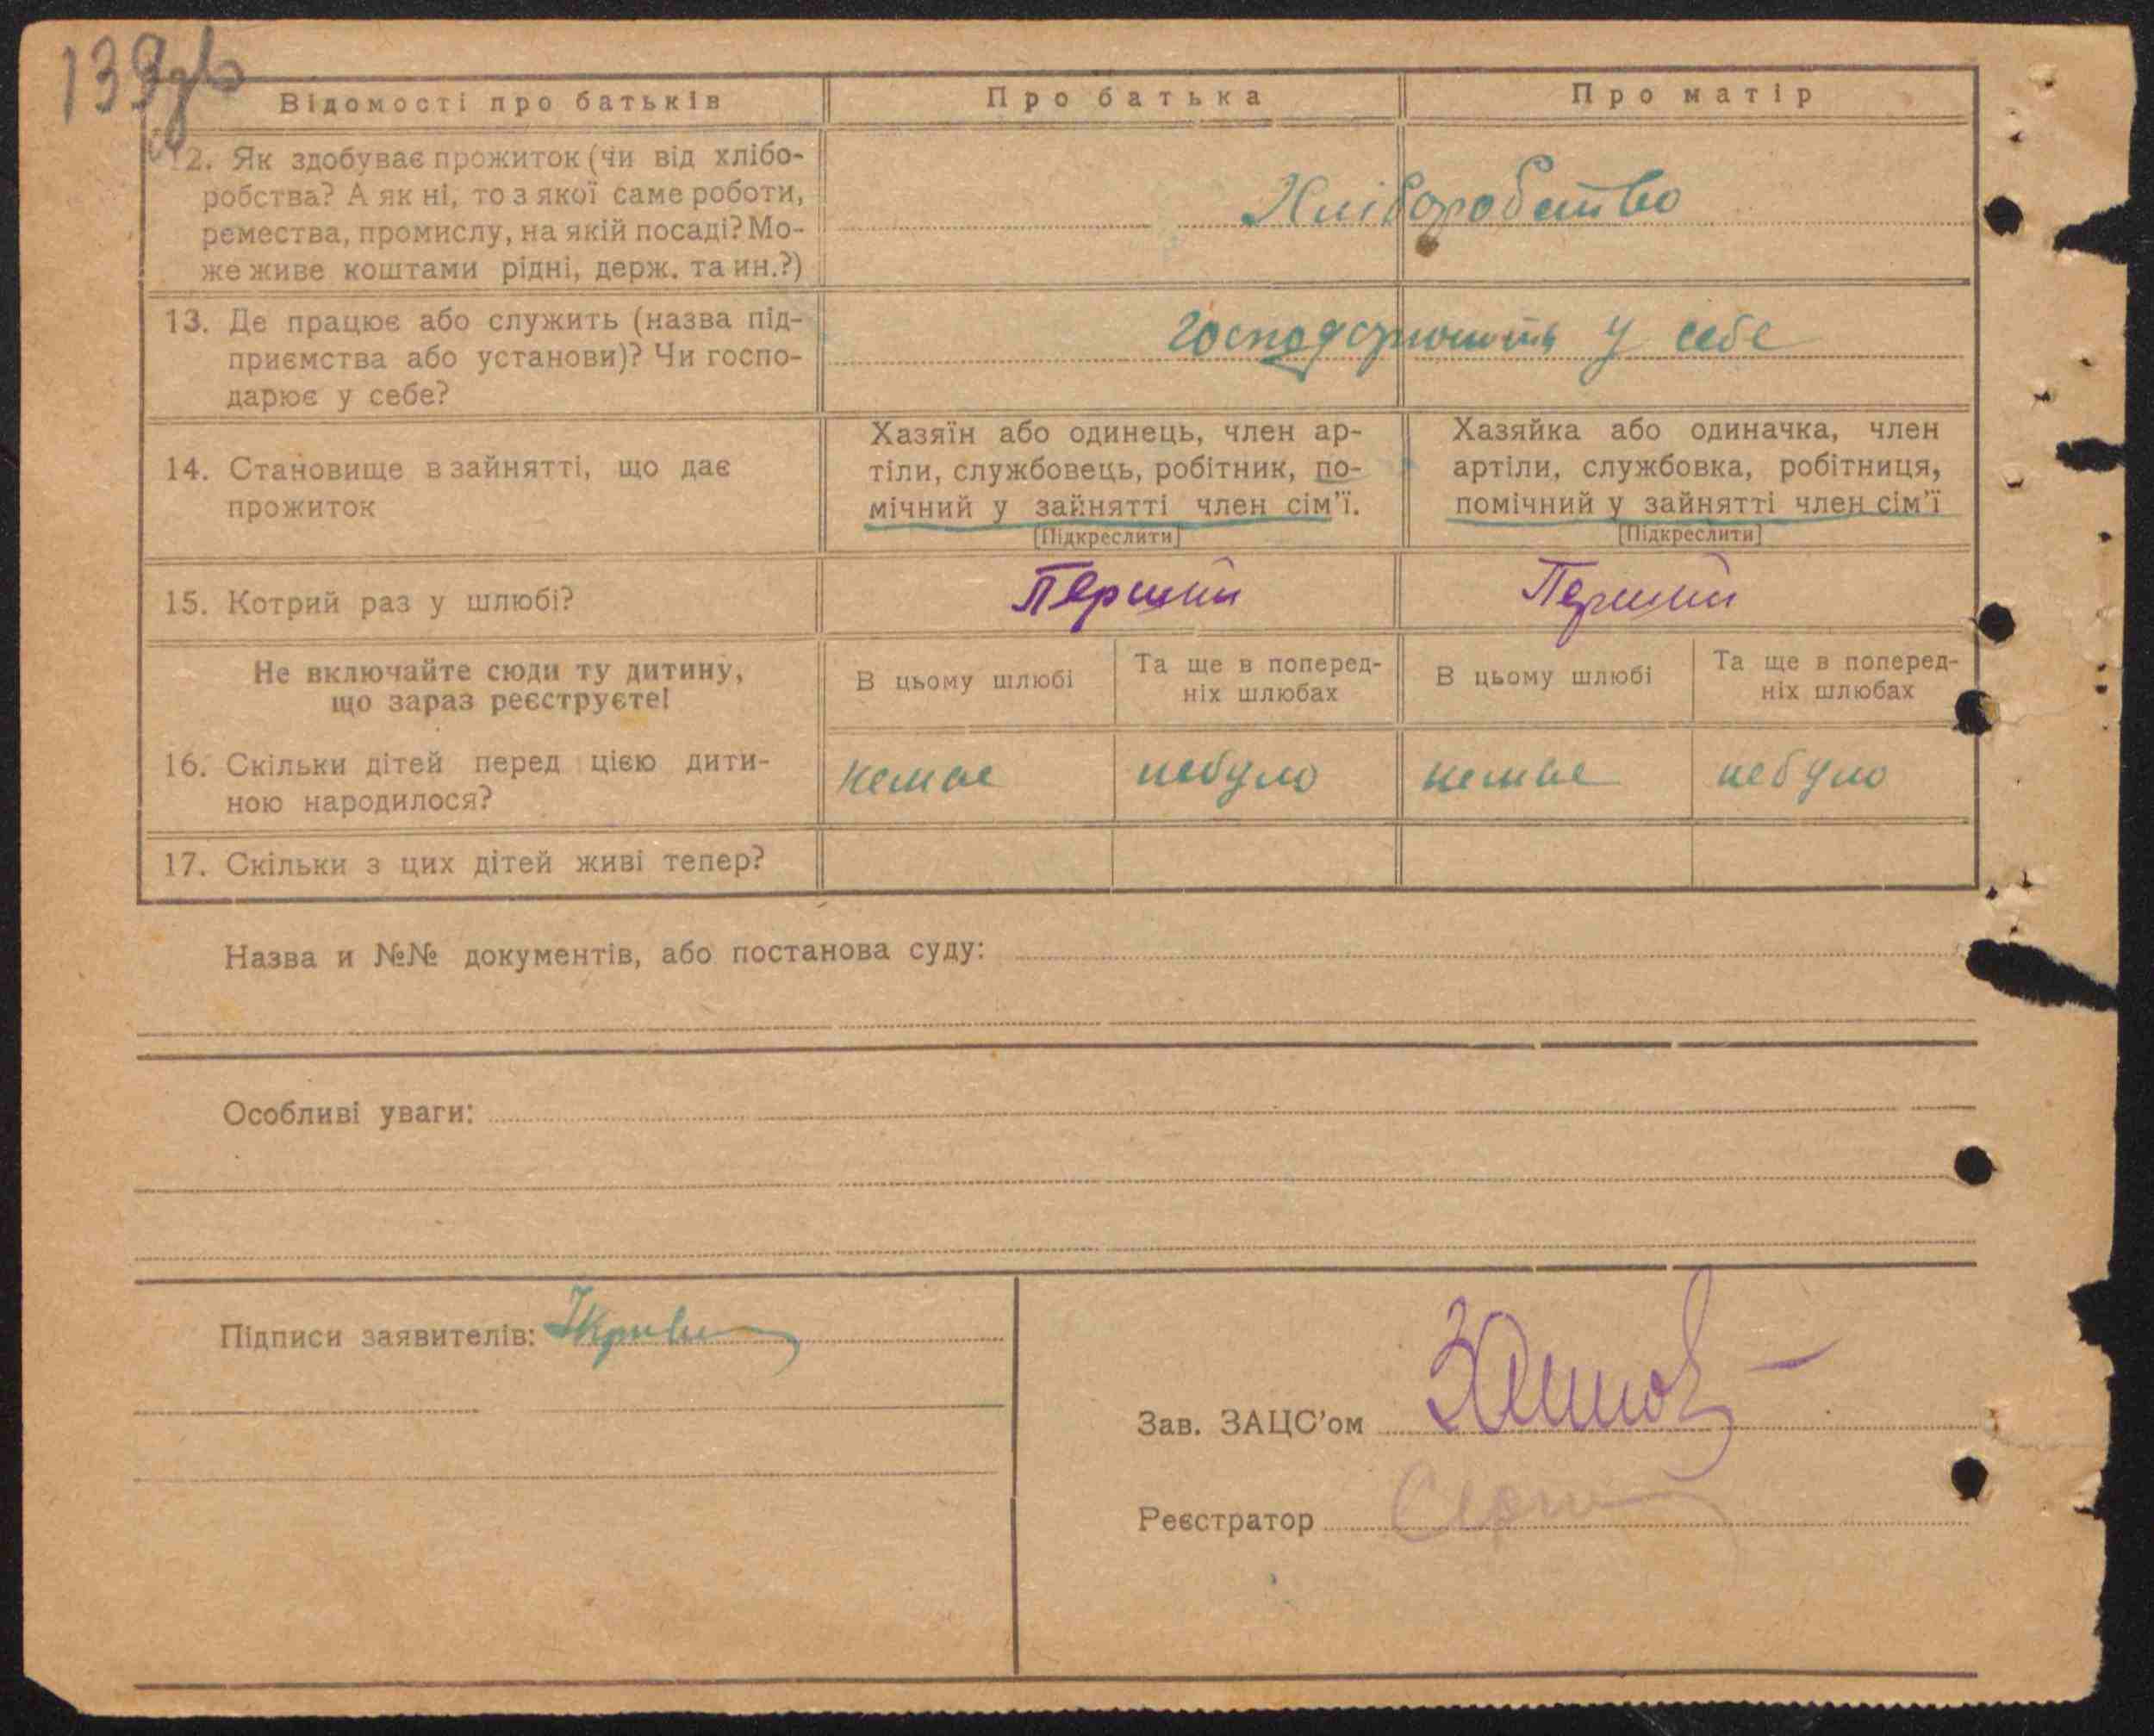 139зв
Відомості про батьків
Про батька
Про матір
12. Як здобуває прожиток (чи від хлібо-
робства? А як ні, то з якої саме роботи,
ремества, промислу, на якій посаді? Мо-
же живе коштами рідні, держ. та ин.?)
Хліборобство
13. Де працює або служить (назва під-
приємства або установи)? Чи госпо-
дарює у себе?
господарюють у себе
14. Становище в зайнятті, що дає
прожиток
Хазяїн або одинець, член ар-
тіли, службовець, робітник, по-
мічний у зайнятті член сім'ї.
[Підкреслити]
Хазяйка або одиначка, член
артіли, службовка, робітниця,
помічний у зайнятті член сім'ї
[Підкреслити]
15. Котрий раз у шлюбі?
Перший
Перший
Не включайте сюди ту дитину,
що зараз реєструєте!
В цьому шлюбі
Та ще в поперед-
ніх шлюбах
В цьому шлюбі
Та ще в поперед-
ніх шлюбах
16. Скільки дітей перед цією дити-
ною народилося?
немає
небуло
немає
небуло
17. Скільки з цих дітей живі тепер?
Назва и №№ документів, або постанова суду:
Особливі уваги:
Підписи заявителів:
Зав. ЗАЦС'ом
Реєстратор